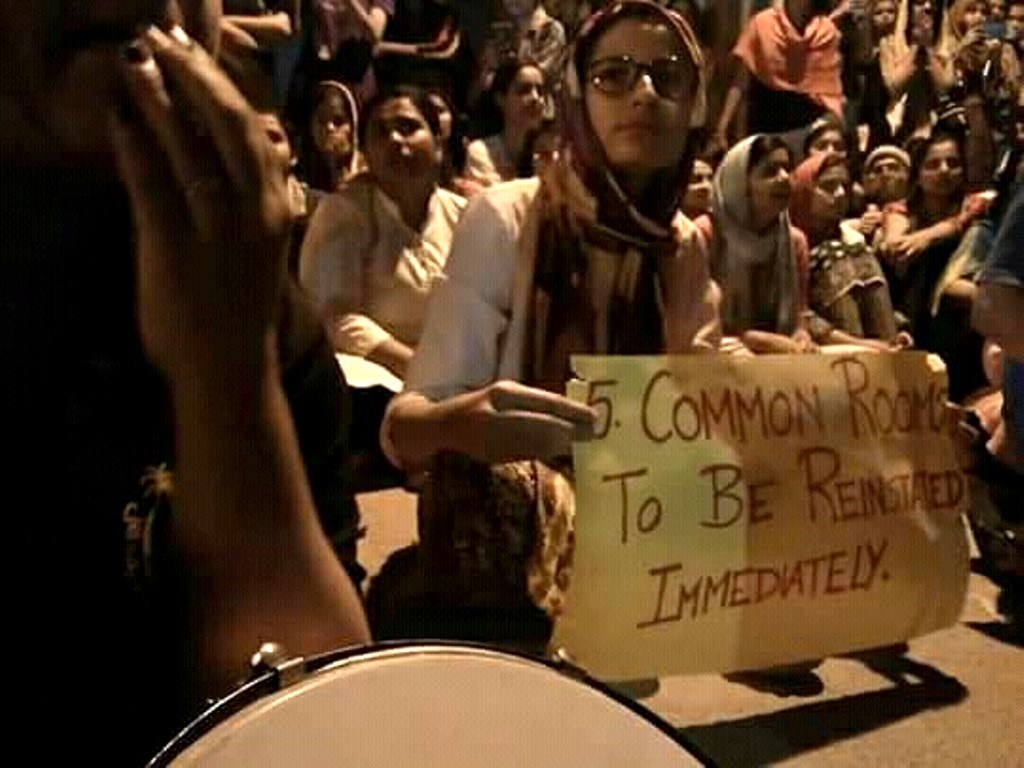 5. COMMON ROOMS
TO BE REINSTATED
IMMEDIATELY.